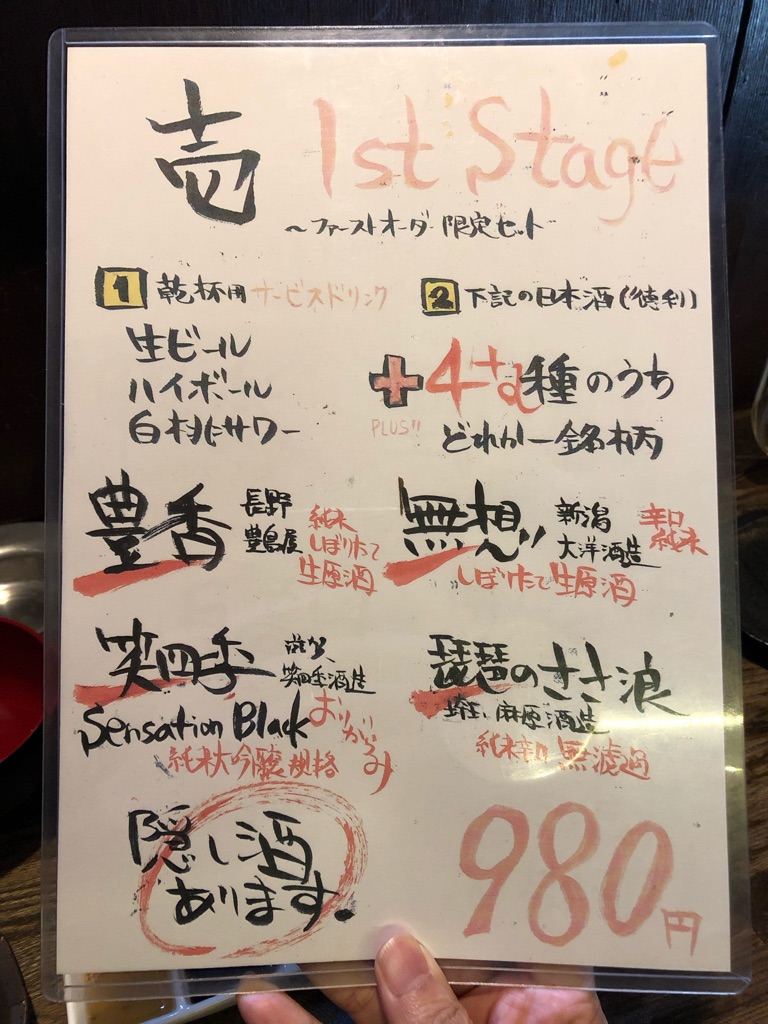 壱 1st Stage
～ファーストオーダー限定セット
1 乾杯用サービスドリンク
生ビール
ハイボール
白桃サワー
2 下記の日本酒(徳利)
+ 4+α種のうち
PLUS!!
どれか一銘柄
豊香 長野 豊島屋
純米
しぼりたて
生原酒
無想 新潟 大洋酒造
辛口
純米
しぼりたて生原酒
笑四季 滋賀、笑四季酒造
Sensation Black
おりがらみ
純米大吟醸規格
琵琶のささ浪
埼玉、麻原酒造
純米辛口 無濾過
隠し酒
あります。
980円